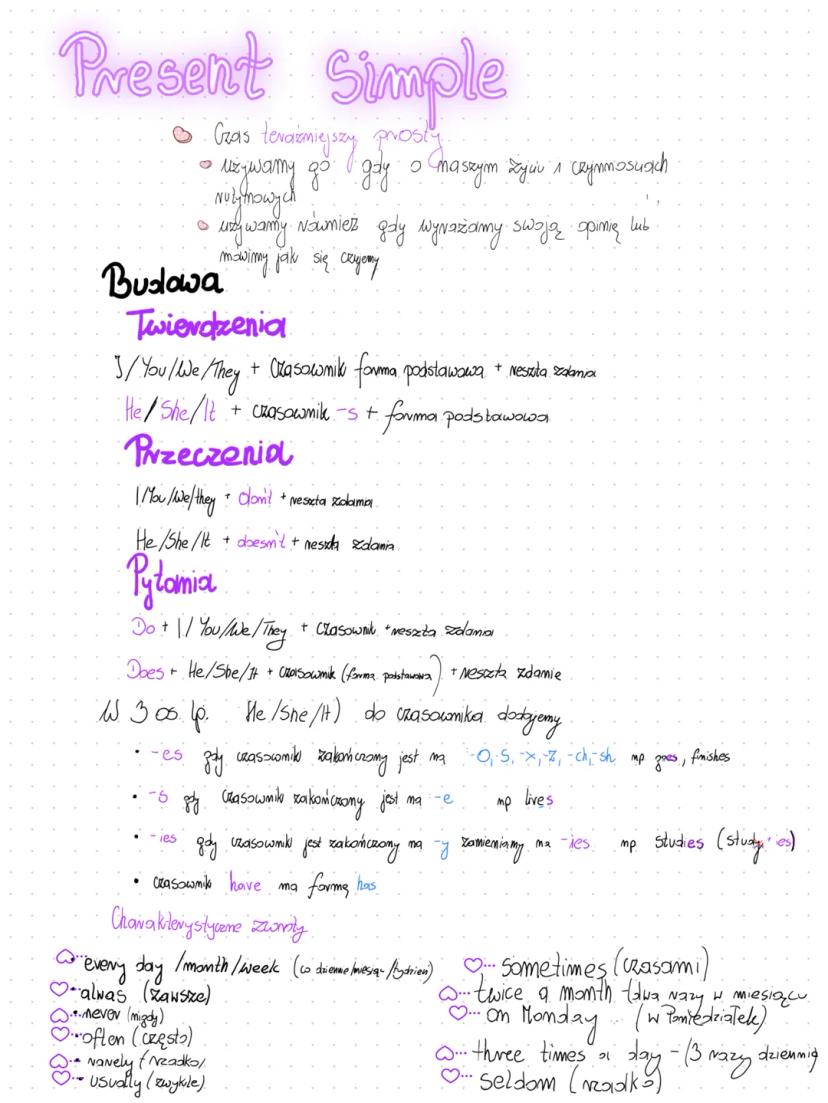 Present Simple
Czas teraźniejszy prosty
używamy go gdy o naszym życiu i czynnościach
rutynowych
używamy również gdy wyrażamy swoją opinię lub
mówimy jak się czujemy
Budowa
Twierdzenia
I/You/We/They + czasownik forma podstawowa + reszta zdania
He/She/It + czasownik -s + forma podstawowa
Przeczenia
I/You/We/they + don't + reszta zdania
He/She/It + doesn't + reszta zdania
Pytania
Do + I/You/We/They + czasownik + reszta zdania
Does + He/She/It + czasownik (forma podstawowa) + reszta zdanie
W 3 os lp. He/She/It) do czasownika dodajemy
• -es gdy czasownik zakończony jest na -o,-s,-x,-z,-ch,-sh np goes, finishes
• -s gdy czasownik zakończony jest na -e np lives
• -ies gdy czasownik jest zakończony na -y zamieniamy na -ies np studies (study+ies)
• czasownik have ma formę has
Charakterystyczne zwroty
every day /month/week (co dzienne/miesiąc/tydzień)
alwas (zawsze)
never (nigdy)
often (często)
rarely (rzadko)
usually (zwykle)
sometimes (czasami)
twice a month (dwa razy w miesiącu
on Monday (w Poniedziałek)
three times a day - (3 razy dziennie
seldom (rzadko)